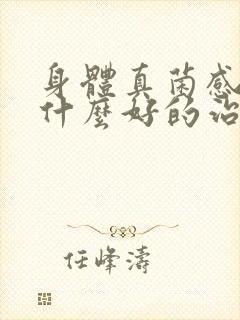 身體真菌感
什麼好的治
任峰濤